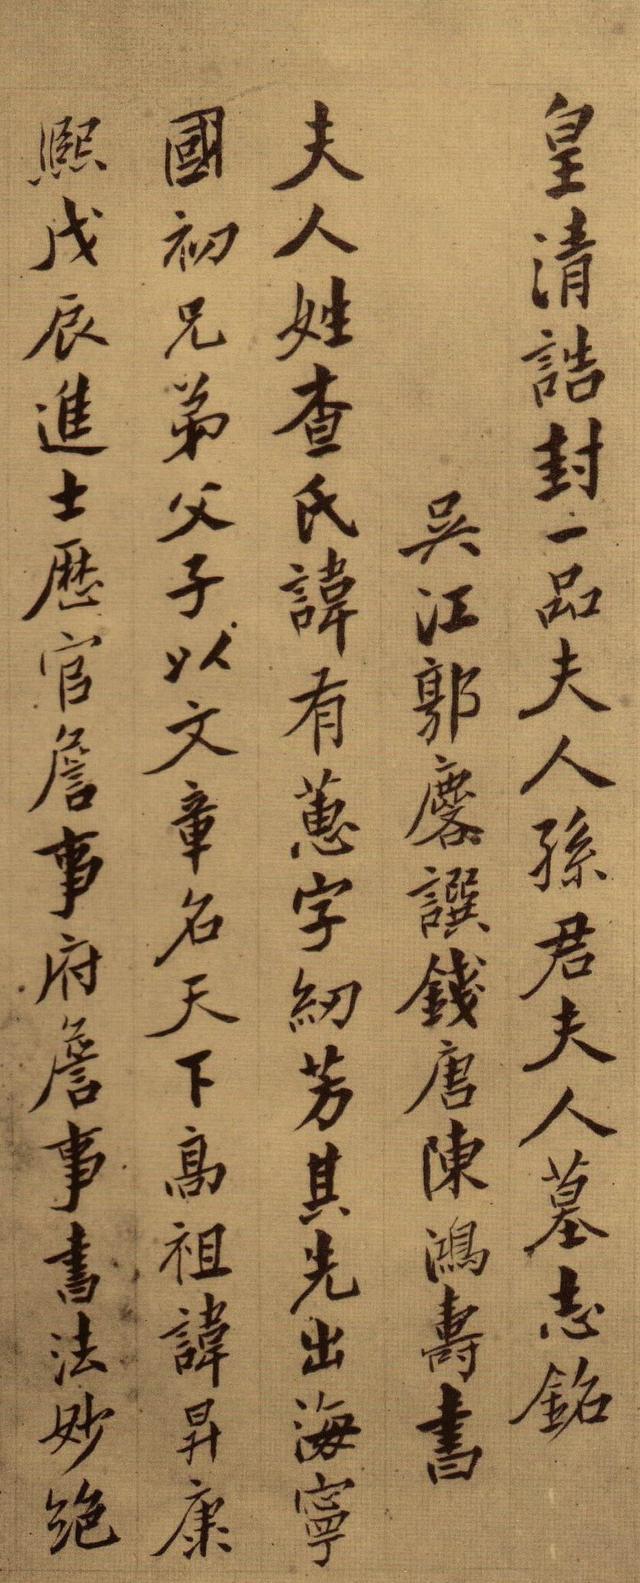 皇清誥封一品夫人孫君夫人墓志銘
吳江郭麐譔錢唐陳鴻壽書
夫人姓查氏諱有蕙字紉芳其先出海寧
國初兄弟父子以文章名天下高祖諱昇康
熙戊辰進士歷官詹事府詹事書法妙絕